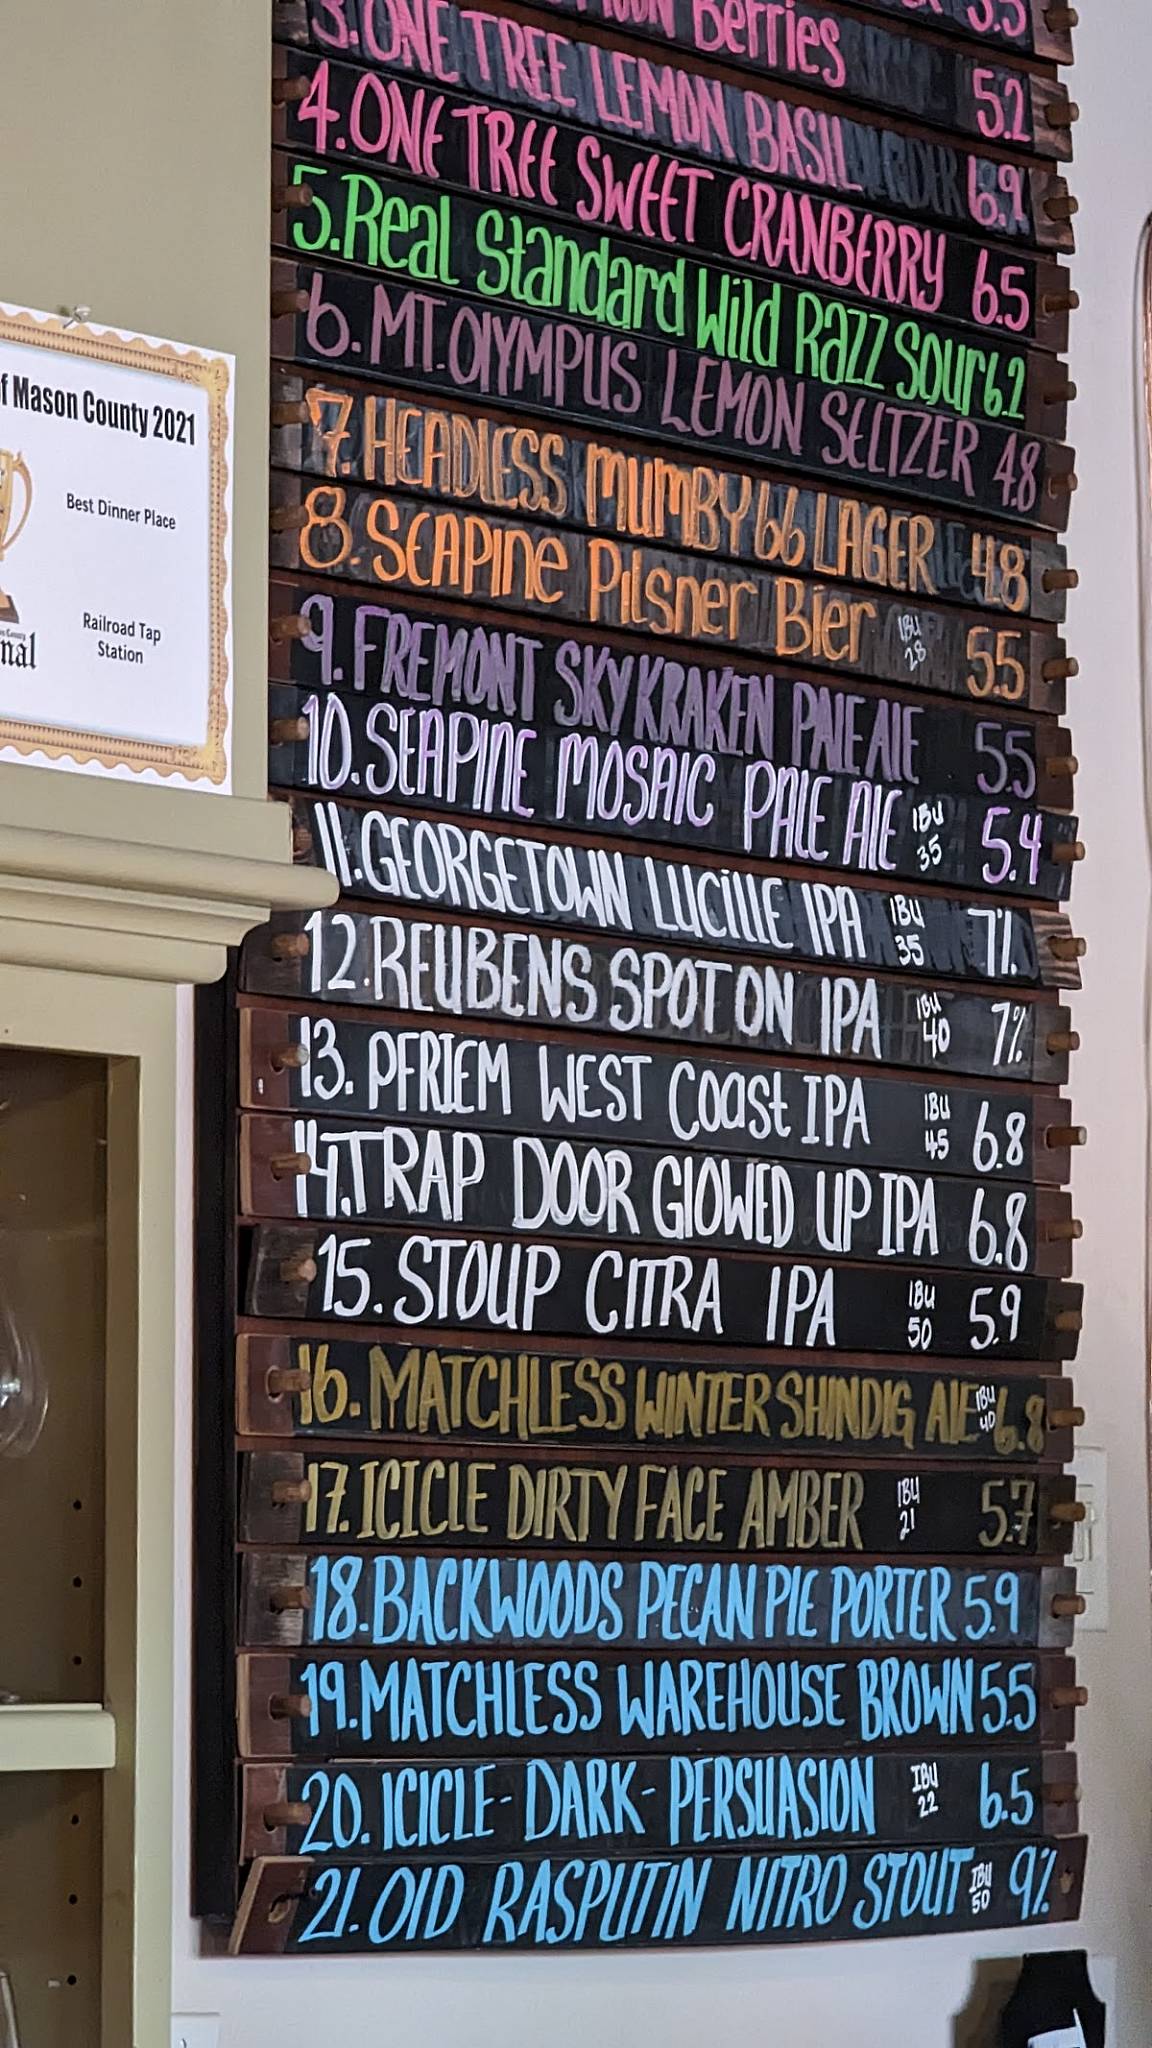 5.5
Berries 5.2
3. ONE TREE LEMON BASIL 6.9
4. ONE TREE SWEET CRANBERRY 6.5
5. Real Standard Wild Razz Sour 6.2
6. MT. OLYMPUS LEMON SELTZER 4.8
7. HEADLESS MUMBY 66 LAGER 4.8
8. SEAPINE Pilsner Bier IBU 28 5.5
9. FREMONT SKYKRAKEN PALE ALE 5.5
10. SEAPINE MOSAIC PALE ALE IBU 35 5.4
11. GEORGETOWN LUCILLE IPA IBU 35 7%
12. REUBENS SPOT ON IPA IBU 40 7%
13. PFRIEM WEST COAST IPA IBU 45 6.8
14. TRAP DOOR GLOWED UP IPA 6.8
15. STOUP CITRA IPA IBU 50 5.9
16. MATCHLESS WINTER SHINDIG ALE IBU 40 6.8
17. ICICLE DIRTY FACE AMBER IBU 21 5.7
18. BACKWOODS PECAN PIE PORTER 5.9
19. MATCHLESS WAREHOUSE BROWN 5.5
20. ICICLE-DARK-PERSUASION IBU 22 6.5
21. OLD RASPUTIN NITRO STOUT IBU 50 9%
f Mason County 2021
Best Dinner Place
Railroad Tap
Station
nal